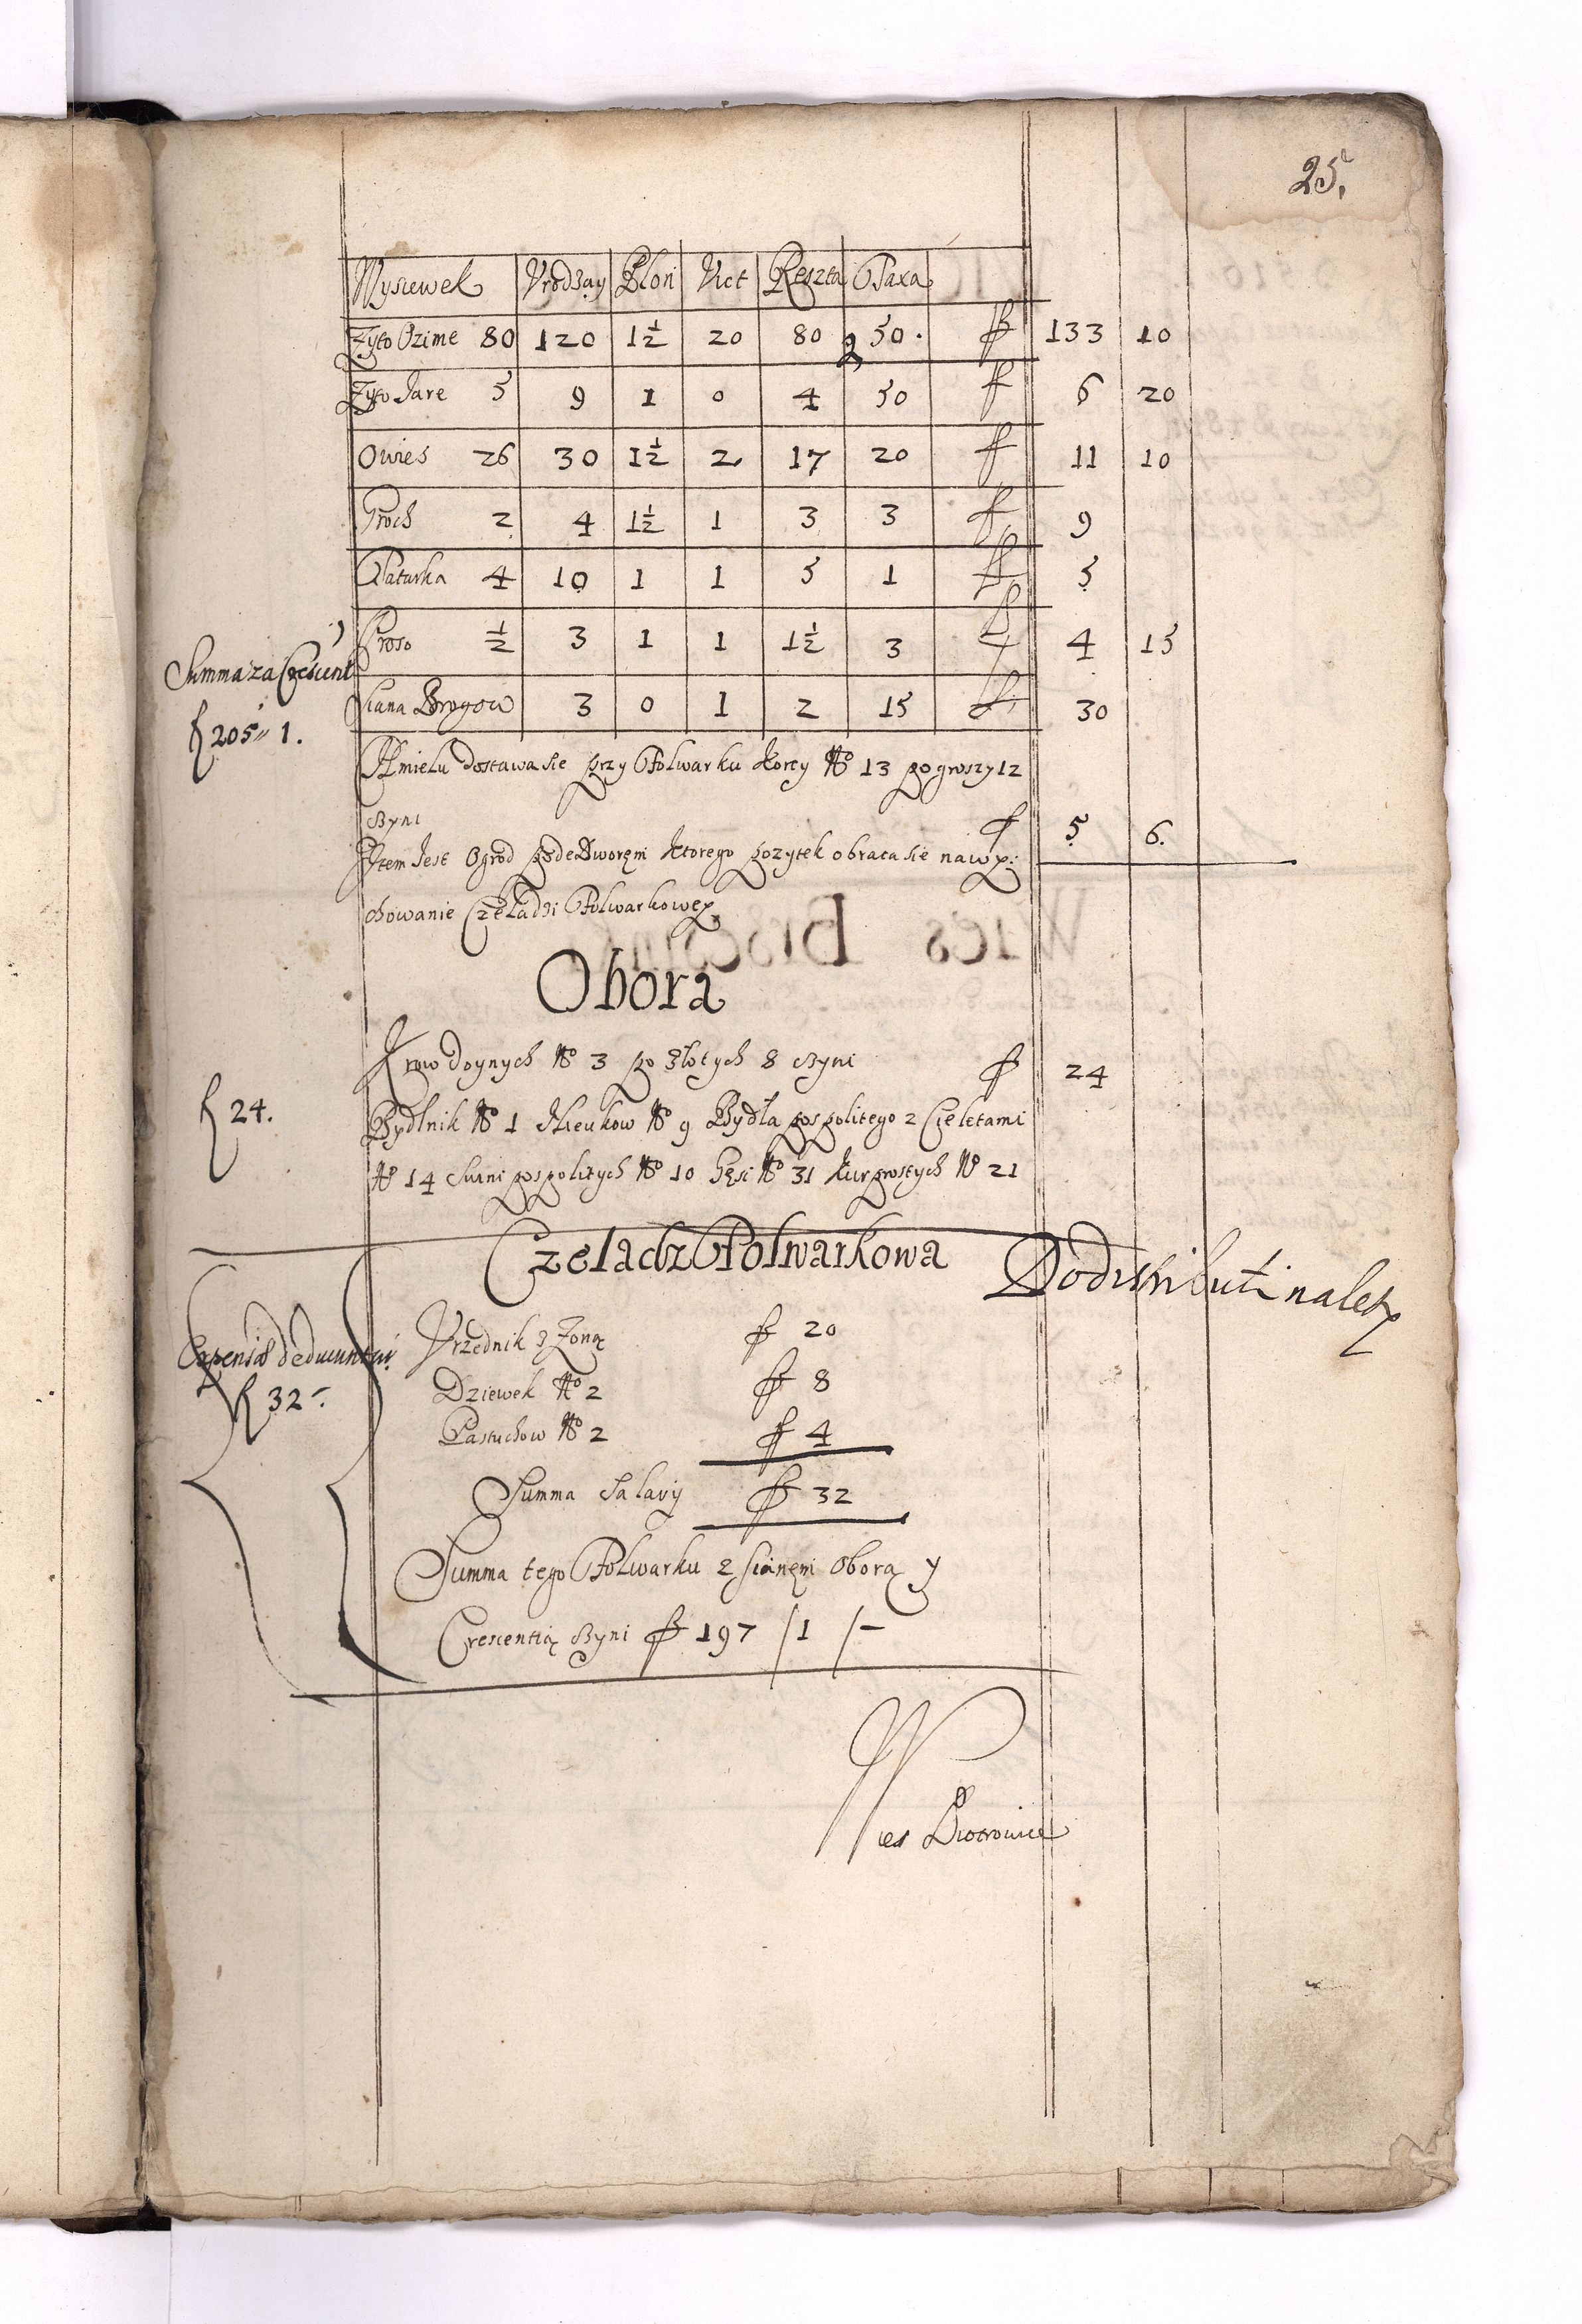 25.
Wysiewek Vrodzay Plon Vict Reszta Taxa
Zyto Ozime 80 120 1½ 20 80 g 50. f 133 10
Zyto Jare 5 9 1 0 4 50 f 6 20
Owies 26 30 1½ 2 17 20 f 11 10
Groch 2 4 1½ 1 3 3 f 9
Tatarka 4 10 1 1 5 1 f 5
Proso ½ 3 1 1 1½ 3 f 4 15
Summa za Crescent
Siana Brogow 3 0 1 2 15 f 30
f 205 // 1.
Chmielu dostawa sie przy Folwarku Korcy No 13 po groszy 12
czyni f 5 6.
Item Jest Ogrod pode Dworęm ktorego pozytek obraca sie na wy:
chowanie Czeladzi Folwarkowey
Obora
Krow doynych No 3 po Złotych 8 czyni f 24
f 24.
Bydlnik No 1 No 9 Bydła pospolitego z Cielętami
No 14 Swini pospolitych No 10 Gęsi No 31 Kur prostych No 21
Czeladz Folwarkowa
Do distributi należy
Vrzednik z Zoną f 20
Expensis deducuntur
Dziewek No 2 f 8
f 32 -.
Pastuchow No 2 f 4
Summa Salarij f 32
Summa tego Folwarku z Sianęm Oborą y
Crescentią czyni f 197 / 1 / -
Wies Piotrowice